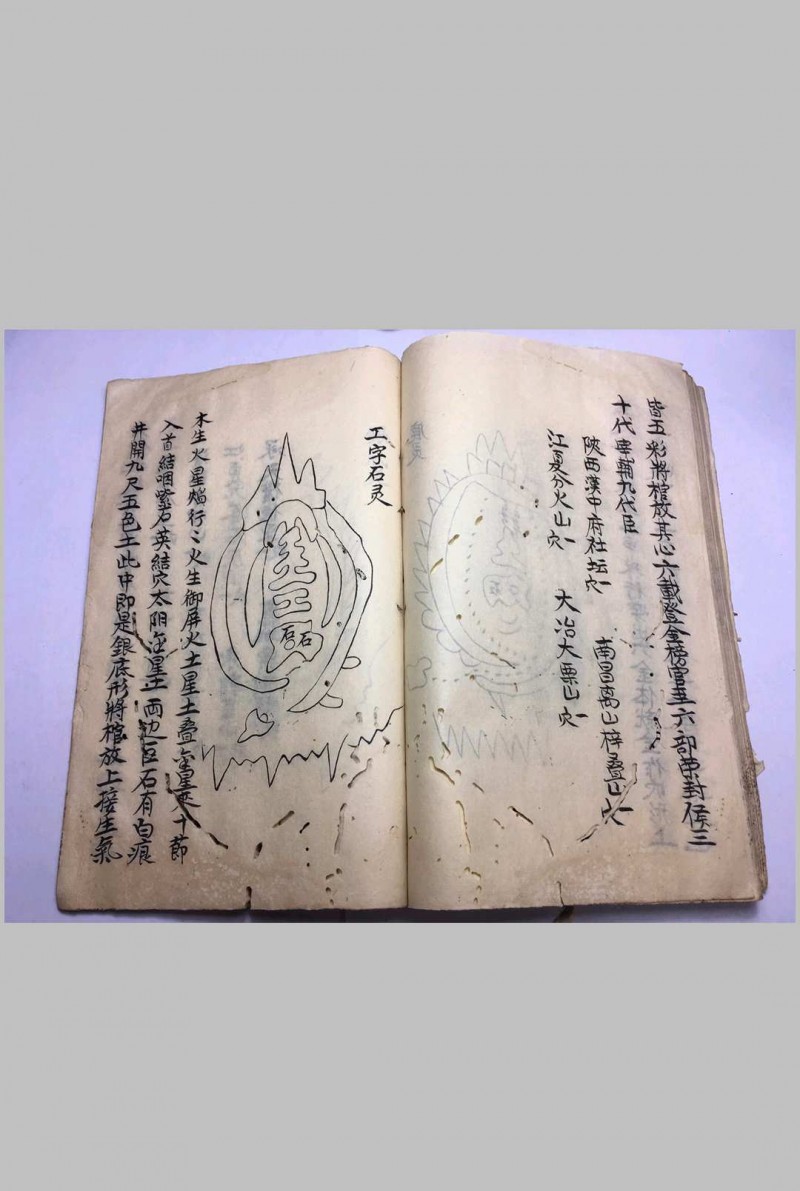 皆五彩將棺放其心六載登金榜官至六部帝封侯三
十代宰輔九代臣
陝西漢中府社坛穴一
南昌离山梓叠山穴一
江夏分火山穴一
大冶大栗山穴一
工字石灵
木生火星焰行〻火生御屏火土星土叠金星要十節
入首結咽紫石英結穴太阴金星土兩边巨石有白痕
井開九尺五色土此中即是銀底形將棺放上接生氣
石
石